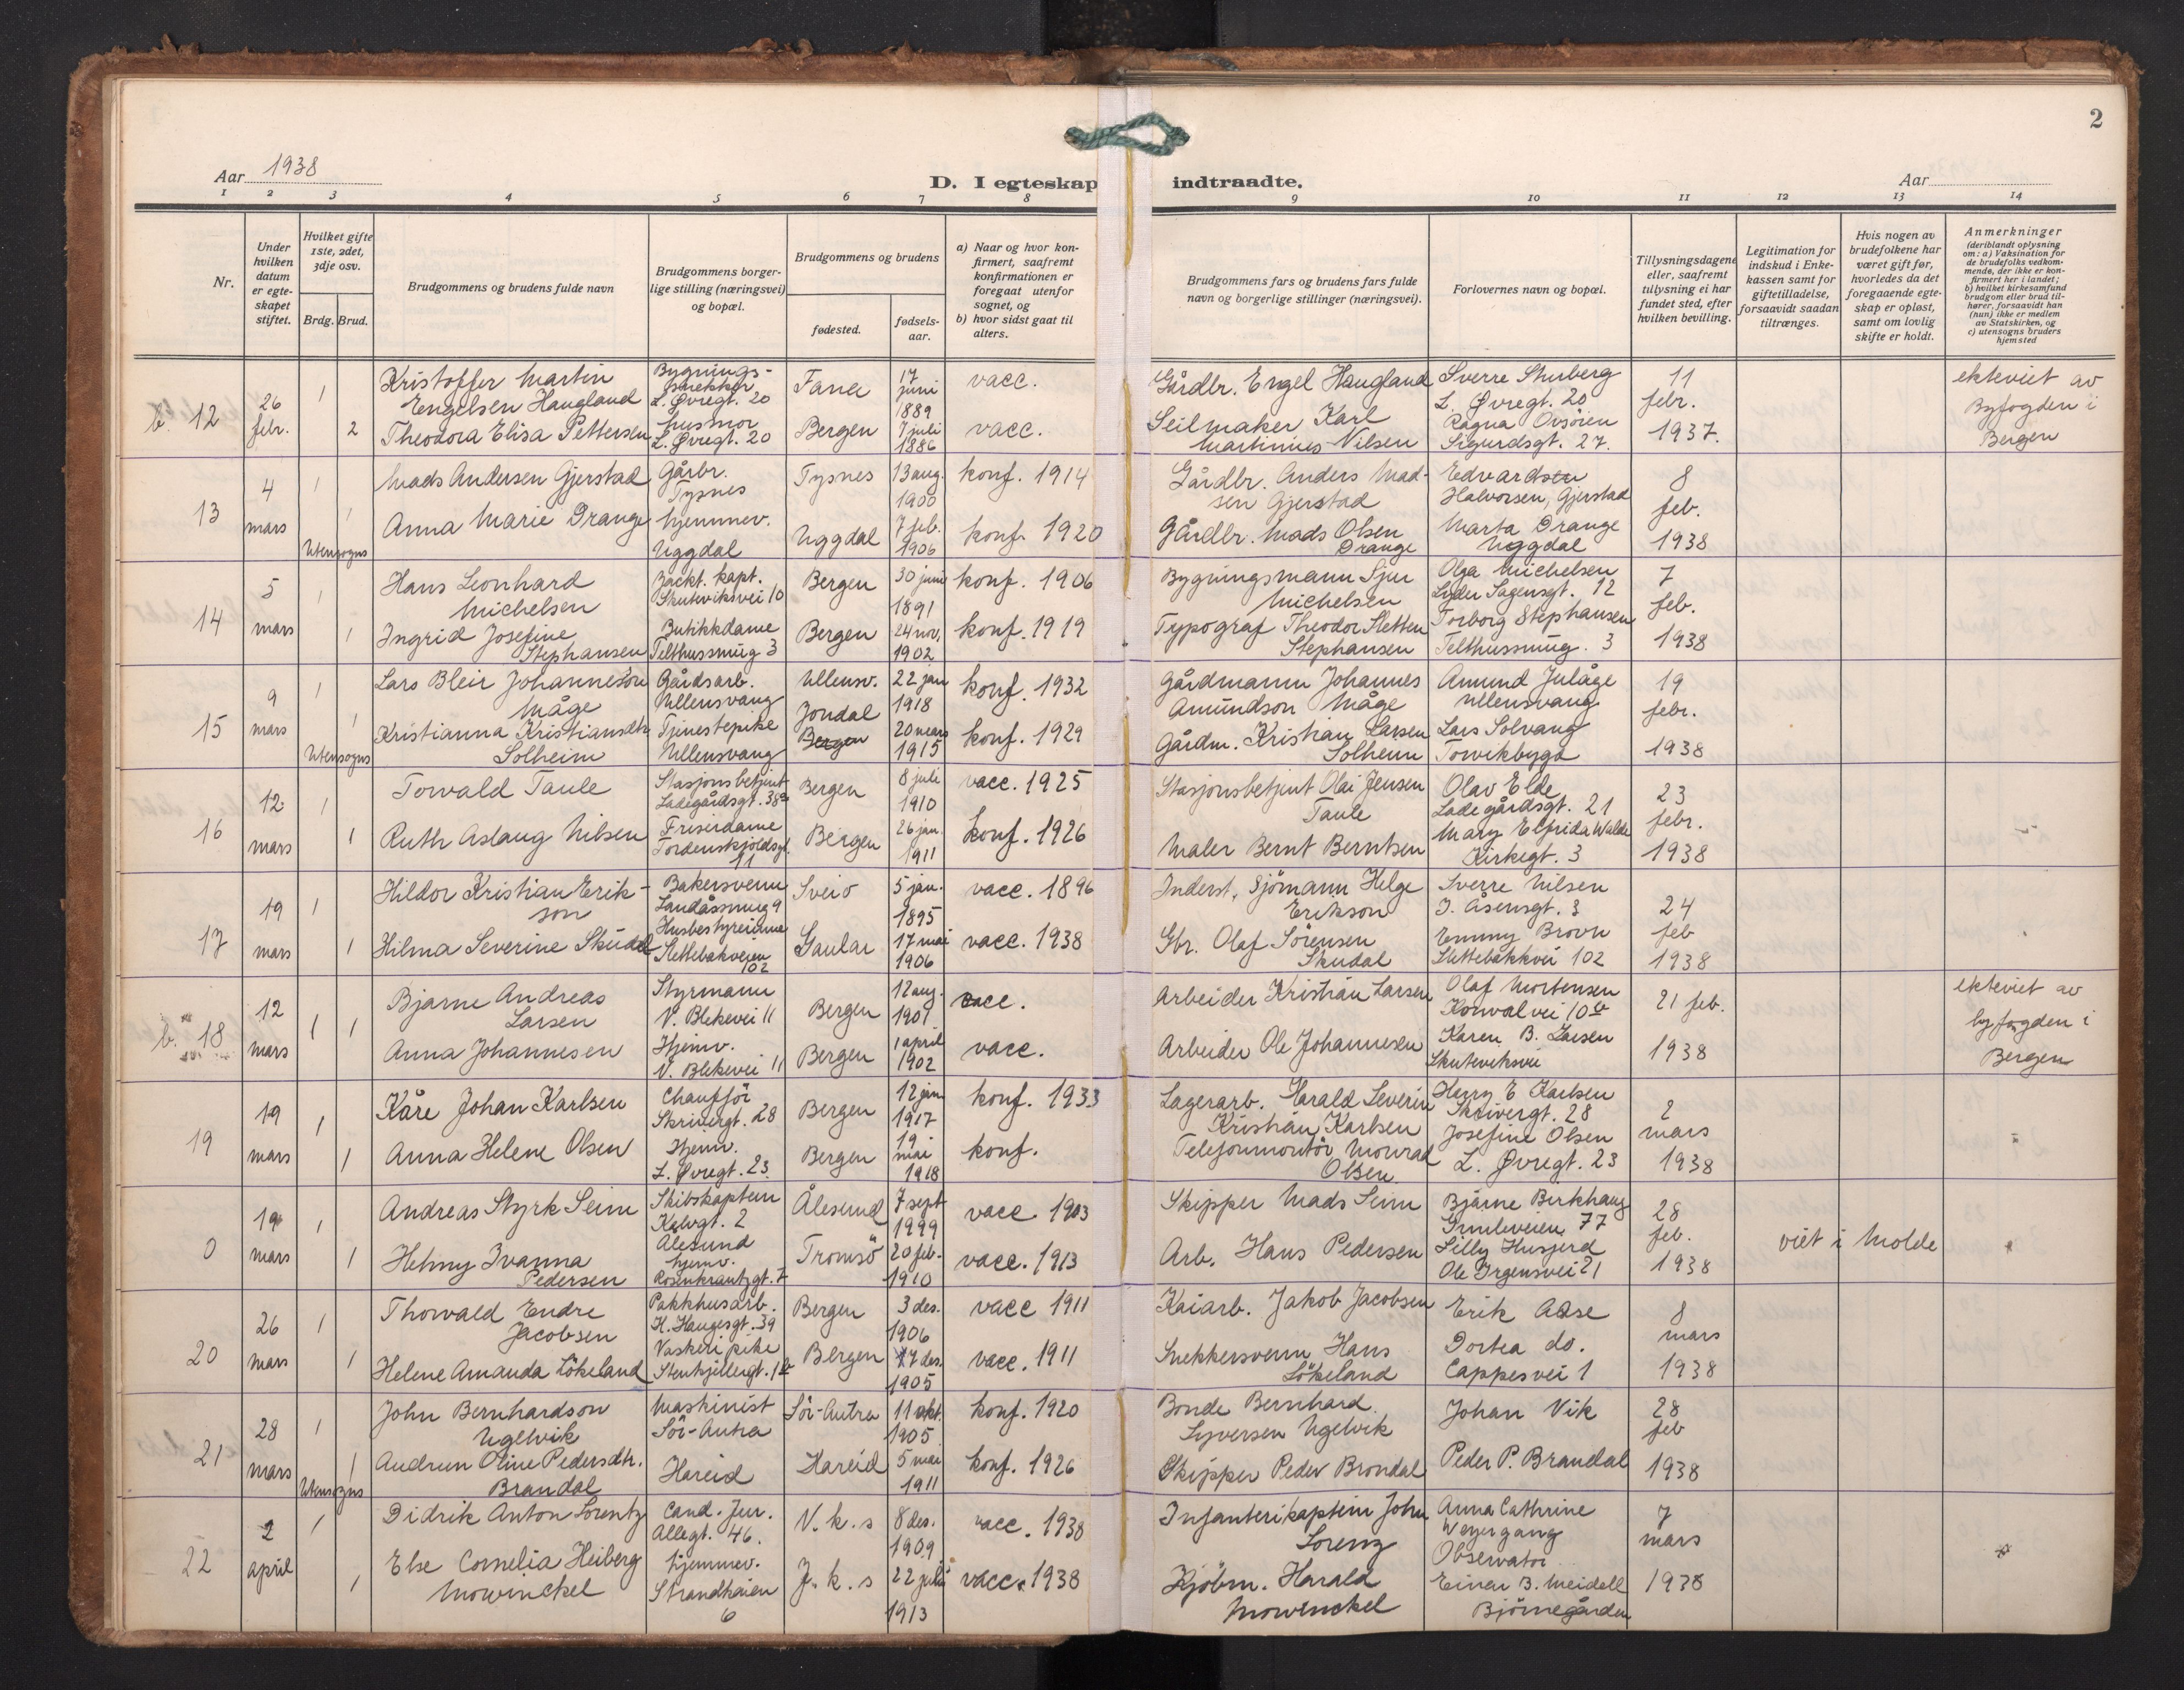 2
Aar 1938
D. I egteskap indtraadte.
Aar
1 2 3 4 5 6 7 8 9 10 11 12 13 14
Nr.
Under hvilken datum er egte-skapet stiftet.
Hvilket gifte 1ste, 2det, 3dje osv.
Brdg. Brud.
Brudgommens og brudens fulde navn
Brudgommens borger-lige stilling (næringsvei) og bopæl.
Brudgommens og brudens
fødested.
fødsels-aar.
a) Naar og hvor kon-firmert, saafremt konfirmationen er foregaat utenfor sognet, og
b) hvor sidst gaat til alters.
Brudgommens fars og brudens fars fulde navn og borgerlige stillinger (næringsvei).
Forlovernes navn og bopæl.
Tillysningsdagene eller, saafremt tillysning ei har fundet sted, efter hvilken bevilling.
Legitimation for indskud i Enke-kassen samt for giftetilladelse, forsaavidt saadan tiltrænges.
Hvis nogen av brudefolkene har været gift før, hvorledes da det foregaaende egte-skap er opløst, samt om lovlig skifte er holdt.
Anmerkninger
(deriblandt oplysning om: a) Vaksination for de brudefolks vedkom-mende, der ikke er kon-firmert her i landet; b) hvilket kirkesamfund brudgom eller brud til-hører, forsaavidt han (hun) ikke er medlem av Statskirken, og c) utensogns bruders hjemsted
b. 12 26 febr. 1 Kristoffer Martin Engelsen Haugland Bygnings-snekker L. Øvregt. 20 Fana 17 juni 1889 vacc. Gårdbr. Engel Haugland Sverre Sturberg L. Øvregt. 20 11 febr. 1937. ekteviet av Byfogden i Bergen
2 Theodora Elisa Pettersen husmor L. Øvregt. 20 Bergen 7 juli 1886 vacc. Seilmaker Karl Martinius Nilsen Ragna Ovsöien Sigurdsgt. 27.
13 4 mars 1 Mads Andersen Gjerstad Gårbr. Tysnes Tysnes 13 aug. 1900 konf. 1914 Gårdbr. Anders Mad-sen Gjerstad Edvardsen Halvorsen, Gjerstad 8 feb. 1938
Utensogns 1 Anna Marie Drange hjemmev. Uggdal Uggdal 7 feb. 1906 konf. 1920 Gårdbr. Mads Olsen Drange Marta Drange Uggdal
14 5 mars 1 Hans Leonhard Michelsen kapt. Skuteviksvei 10 Bergen 30 juni 1891 konf. 1906 Bygningsmann Sjur Michelsen Olga Michelsen Lyder Sagensgt. 12 7 feb. 1938
1 Ingrid Josefine Stephansen Butikkdame Telthussmug 3 Bergen 24 nov. 1902 konf. 1919 Typograf Theodor Sletten Stephansen Torborg Stephansen Telthussmug. 3
15 9 mars 1 Lars Bleie Johanneson Måge Gårdsarb. Ullensvang Ullensv. 22 jan 1918 konf. 1932 Gårdmann Johannes Amundson Måge Amund Julåge Ullensvang 19 febr. 1938
Utensogns 1 Kristianna Kristiansdtr Solheim Tjenestepike Ullensvang Jondal Bergen 20 mars 1915 konf. 1929 Gårdm. Kristian Larsen Solheim Lars Solvang Torvikbygd
16 12 mars 1 Torvald Taule Stasjonsbetjent Ladegårdsgt. 38a Bergen 8 juli 1910 vacc. 1925 Stasjonsbetjent Olai Jensen Taule Olav Elde Ladegårdsgt. 21 23 febr. 1938
1 Ruth Aslaug Nilsen Friserdame Tordenskjoldsgt. 11 Bergen 26 jan. 1911 konf. 1926 Maler Bernt Berntsen Mary Elfrida Walde Kirkegt. 3
17 19 mars 1 Hildor Kristian Erik-son Bakersvenn Landåssmug 9 Sveio 5 jan. 1895 vacc. 1896 Inderst, Sjömann Helge Erikson Sverre Nilsen I. Åsensgt. 3 24 feb 1938
1 Hilma Severine Skudal Husbestyrerinne Slettebakveien 102 Gaular 17 mai 1906 vacc. 1938 Gbr. Olaf Sörensen Skudal Emmy Brovn Slettebakkvei 102
b. 18 12 mars 1 Bjarne Andreas Larsen Styrmann N. Blekevei 11 Bergen 12 aug. 1901 vacc. Arbeider Kristian Larsen Olaf Mortensen Konvalvei 10 b 21 feb. 1938 ekteviet av byfogden i Bergen
1 Anna Johannesen Hjemv. N. Blekevei 11 Bergen 1 april 1902 vacc. Arbeider Ole Johannesen Karen B. Larsen Skuteviksvei
19 19 mars 1 Kåre Johan Karlsen Chaufför Skrivergt. 28 Bergen 12 jan 1917 konf. 1933 Lagerarb. Harald Severin Kristian Karlsen Harry E Karlsen Skrivergt. 28 2 mars 1938
1 Anna Helene Olsen Hjemv. L. Øvregt. 23 Bergen 19 mai 1918 konf. Telefonmontör Monrad Olsen Josefine Olsen L. Øvregt. 23
0 19 mars 1 Andreas Styrk Seim Skibskaptein Kalvgt. 2 Ålesund Ålesund 7 sept 1899 vacc 1903 Skipper Mads Seim Bjarne Birkhaug Gimleveien 77 28 feb. 1938 viet i Molde
1 Helmy Ivanna Pedersen hjemv. Rosenkrantzgt. 7 Tromsö 20 feb. 1910 vacc. 1913 Arb. Hans Pedersen Lilly Husjerd Ole Irgensvei 21
20 26 mars 1 Thorvald Endre Jacobsen Pakkhusarb. H. Haugesgt. 39 Bergen 3 des. 1906 vacc 1911 Kaiarb. Jakob Jacobsen Erik Aase 8 mars 1938
1 Helene Amanda Lökeland Vaskeripike Stenkjellergt. 1 b Bergen 17 des. 1905 vacc. 1911 Snekkersvenn Hans Lökeland Dortea do. Cappesvei 1
21 28 mars 1 John Bernhardson Ugelvik Maskinist Sör-Autra Sör-Autra 11 okt. 1905 konf. 1920 Bonde Bernhard Syversen Ugelvik Johan Vik 28 feb 1938
Utensogns 1 Audrun Oline Pedersdtr. Brandal Hareid Hareid 5 mai 1911 konf. 1926 Skipper Peder Brandal Peder P. Brandal
22 2 april 1 Didrik Anton Lorentz Cand. Jur. Allegt. 46. N. k. s 8 des. 1909 vacc. 1938 Infanterikaptein John Lorenz Anna Cathrine Weyergang Observator 7 mars 1938
1 Else Cornelia Heiberg Mowinckel hjemmev. Strandkaien 6 J. k. s 22 juli 1913 vacc. 1938 Kjöbm. Harald Mowinckel Einar B. Meidell Björnegården